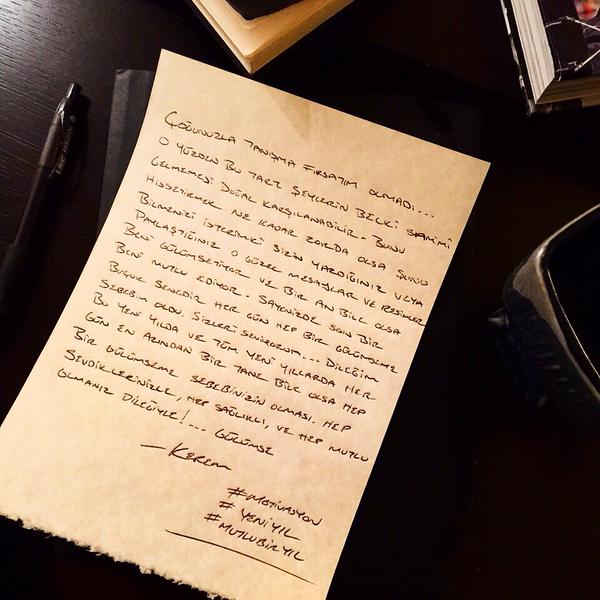 Çoğunuzla tanışma fırsatım olmadı...
O yüzden bu tarz şeylerin belki samimi
gelmemesi doğal karşılanabilir. Bunu
hissettirmek ne kadar zorda olsa şunu
bilmenizi isterimki sizin yazdığınız veya
paylaştığınız o güzel mesajlar ve resimler
beni gülümsetiyor ve bir an bile olsa
beni mutlu ediyor. Sayenizde son bir
buçuk senedir her gün hep bir gülümseme
sebebim oldu. Sizleri seviyorum... Dileğim
bu yeni yılda ve tüm yeni yıllarda her
gün en azından bir tane bile olsa hep
bir gülümseme sebebinizin olması. Hep
sevdiklerinizle, hep sağlıklı, ve hep mutlu
olmanız dileğiyle!... Gülümse
-Kerem
#motivasyon
#yeniyıl
#mutlubiryıl